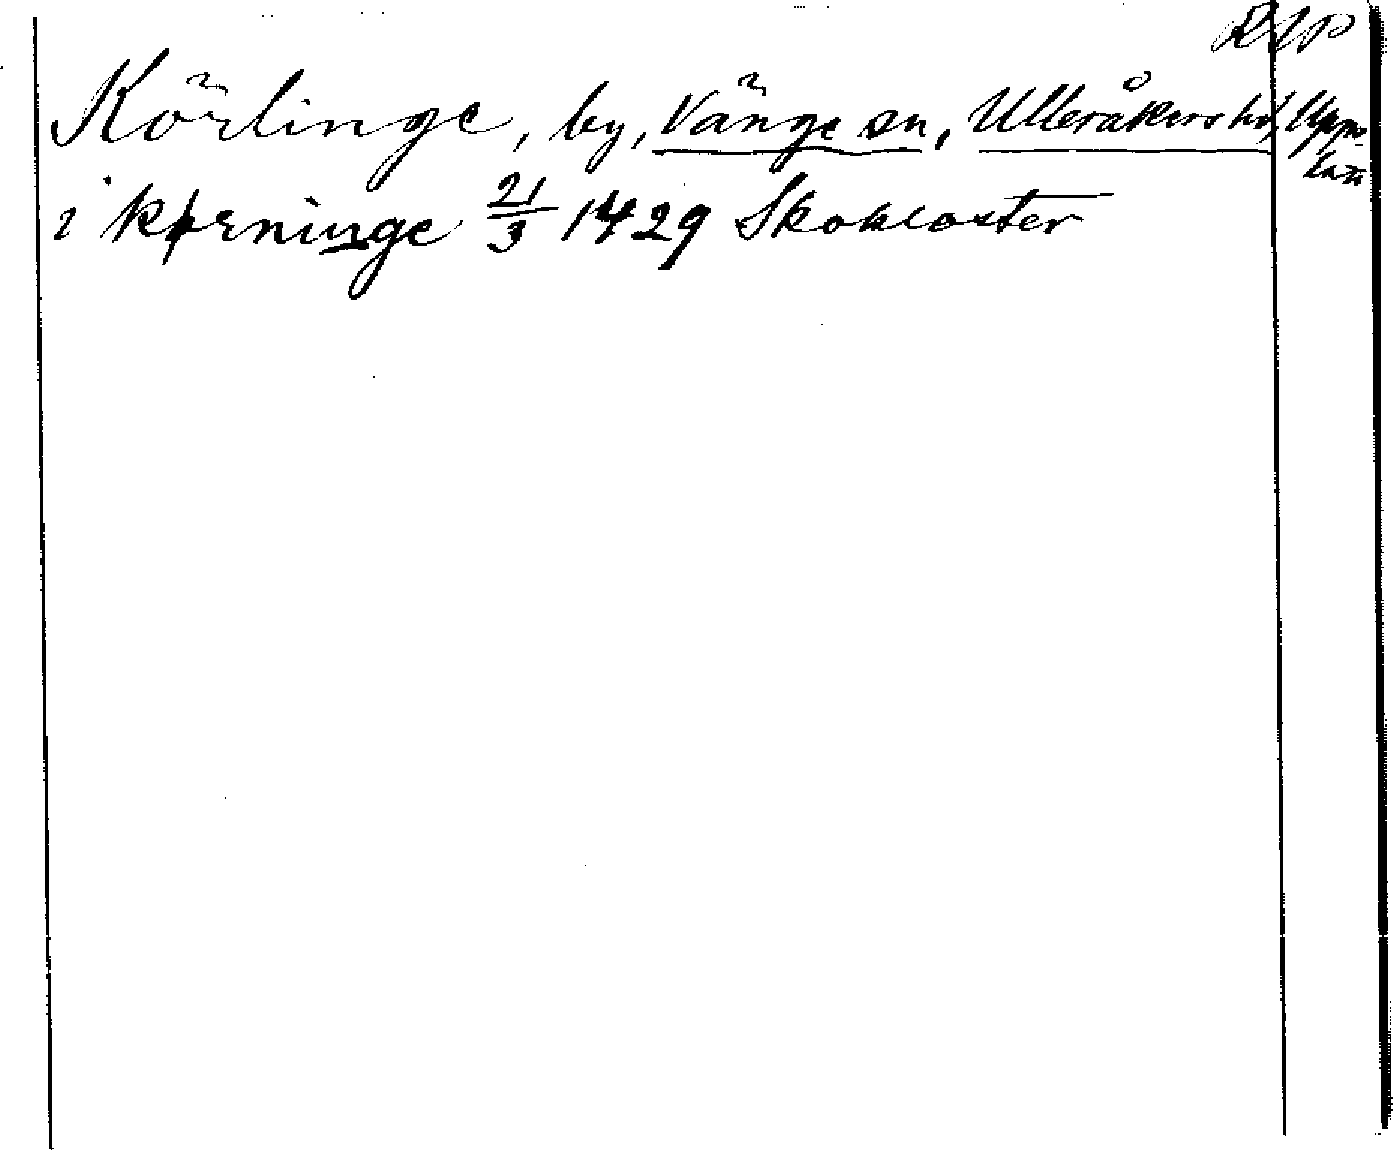 RAP
Körlinge, by, Vänge sn, Ulleråkers hd, Uppland
i kørninge 21/3 1429 Skokloster